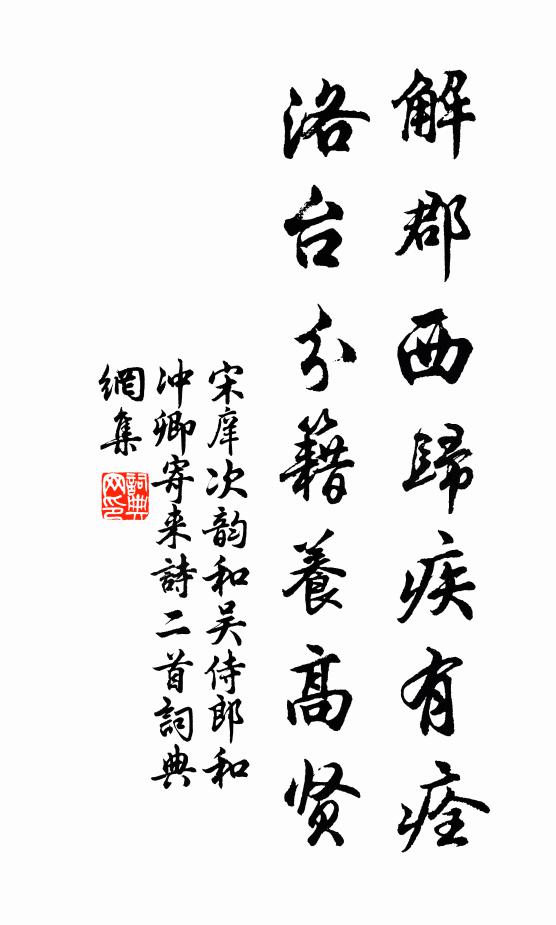 解郡西歸疾有痊
洛台分籍養高贤
宋庠次韵和吴侍郎和
冲卿寄来詩二首詞典
網集
詞典
网印